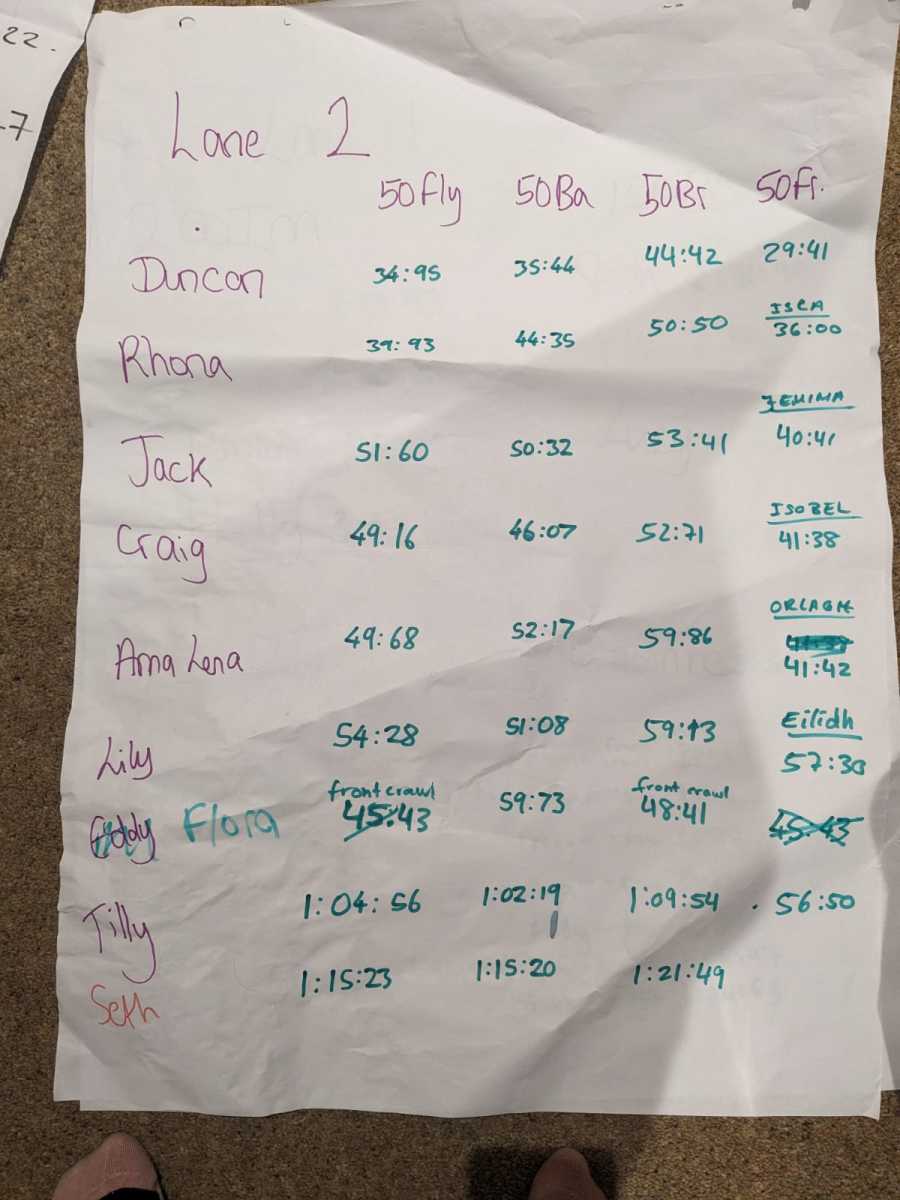 22.
7
Lane 2
50Fly 50Ba 50Br 50Fr.
Duncan 34:95 35:44 44:42 29:41
ISLA
Rhona 39:93 44:35 50:50 36:00
JEMIMA
Jack 51:60 50:32 53:41 40:41
ISOBEL
Craig 49:16 46:07 52:71 41:38
ORLAGH
Anna Lena 49:68 52:17 59:86
41:42
Eilidh
Lily 54:28 51:08 59:13 57:30
front crawl front crawl
Flora 45:43 59:73 48:41 45:43
Tilly 1:04:56 1:02:19 1:09:54 . 56:50
Seth 1:15:23 1:15:20 1:21:49